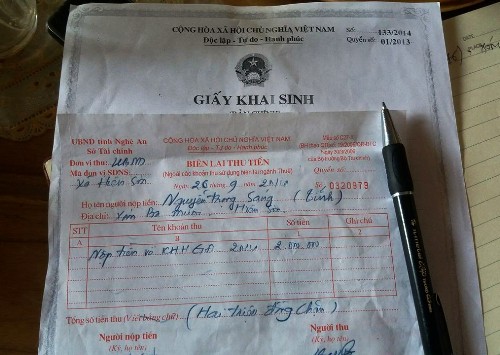 CỘNG HÒA XÃ HỘI CHỦ NGHĨA VIỆT NAM
Độc lập - Tự do - Hạnh phúc
Số: 133/2014
Quyển số: 01/2013
GIẤY KHAI SINH
UBND tỉnh Nghệ An
Sở Tài chính
Đơn vị thu: UBND
Mã đơn vị SDNS:
Xã Hiến Sơn
CỘNG HÒA XÃ HỘI CHỦ NGHĨA VIỆT NAM
Độc lập - Tự do - Hạnh phúc
BIÊN LAI THU TIỀN
(Ngoài các khoản thu sử dụng biên lai ngành Thuế)
Ngày 26 tháng 9 năm 2014
Quyển số:
Số: 0320973
Họ tên người nộp tiền: Nguyễn Trọng Sáng (Tình)
Địa chỉ: Xóm Hiến Sơn
STT
Tên khoản thu
Số tiền
Ghi chú
A
B
1
2
Nộp tiền KHHGĐ 2014
2.000.000
Tổng số tiền thu (Viết bằng chữ): (Hai triệu đồng chẵn)
Người nộp tiền
(Ký, họ tên)
Người thu
(Ký, họ tên)